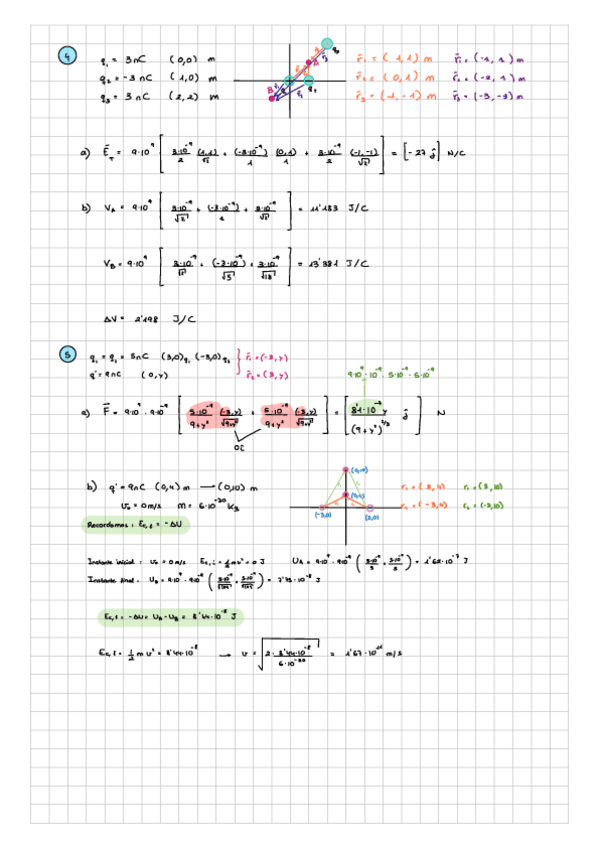 4
q₁ = 3nC (0,0) m
q₂ = -3nC (1,0) m
q₃ = 3nC (2,2) m
r̄₁ = (1,1) m r̄₁ = (-1,1) m
r̄₂ = (0,1) m r̄₂ = (-2,1) m
r̄₃ = (-1,-1) m r̄₃ = (-3,-3) m
a) Ē_T = 9·10⁹ [ 3·10⁻⁹/2 (1,1)/√2 + (-3·10⁻⁹)/1 (0,1)/1 + 3·10⁻⁹/2 (-1,-1)/√2 ] = [-27 ĵ] N/C
b) V_A = 9·10⁹ [ 3·10⁻⁹/√2 + (-3·10⁻⁹)/1 + 3·10⁻⁹/√2 ] = 11'183 J/C
V_B = 9·10⁹ [ 3·10⁻⁹/√2 + (-3·10⁻⁹)/√5 + 3·10⁻⁹/√18 ] = 13'381 J/C
ΔV = 2'198 J/C
5
q₁ = q₂ = 5nC (3,0)q₁ (-3,0)q₂ } r̄₁ = (-3,y)
q' = 9nC (0,y) r̄₂ = (3,y)
9·10⁹·10⁻⁹·5·10⁻⁹·5·10⁻⁹
a) F̄ = 9·10⁹·9·10⁻⁹ [ 5·10⁻⁹/9+y² (-3,y)/√9+y² + 5·10⁻⁹/9+y² (-3,y)/√9+y² ] = [ 81·10⁻⁸y/(9+y²)^3/2 ĵ ] N
b) q' = 9nC (0,4) m → (0,10) m
v₀ = 0m/s m = 6·10⁻²⁰ kg
Recordamos: Ec,f = -ΔU
(0,10)
(0,4)
(-3,0) (3,0)
r₁ = (3,4) r₁ = (3,10)
r₂ = (-3,4) r₂ = (-3,10)
Instante inicial: v₀ = 0m/s Ec,i = ½mv² = 0 J U_A = 9·10⁹·9·10⁻⁹ (5·10⁻⁹/5 + 5·10⁻⁹/5) = 1'62·10⁻⁷ J
Instante final: U_B = 9·10⁹·9·10⁻⁹ (5·10⁻⁹/√109 + 5·10⁻⁹/√109) = 7'75·10⁻⁸ J
Ec,f = -ΔU = U_A - U_B = 8'44·10⁻⁸ J
Ec,f = ½ m v² = 8'44·10⁻⁸ → v = √(2·8'44·10⁻⁸/6·10⁻²⁰) = 1'67·10⁶ m/s